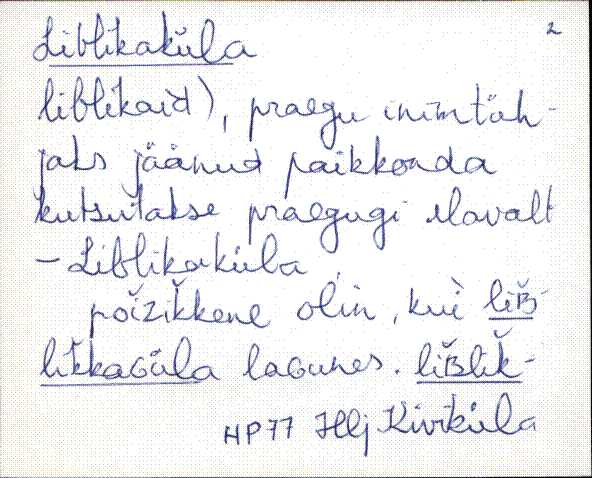 2
Liblikaküla
liblikaid), praegu inimtüh-
jaks jäänud paikkonda
kutsutakse praegugi ilavalt
– Liblikaküla,
poižikkene olin, kui liʙ̆-
likkaGüla laGunes. liʙ̆lik̆-
HP77 Hlj Kiviküla